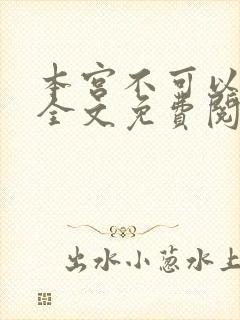 本宫不可以
全文免费阅
出水小葱水上